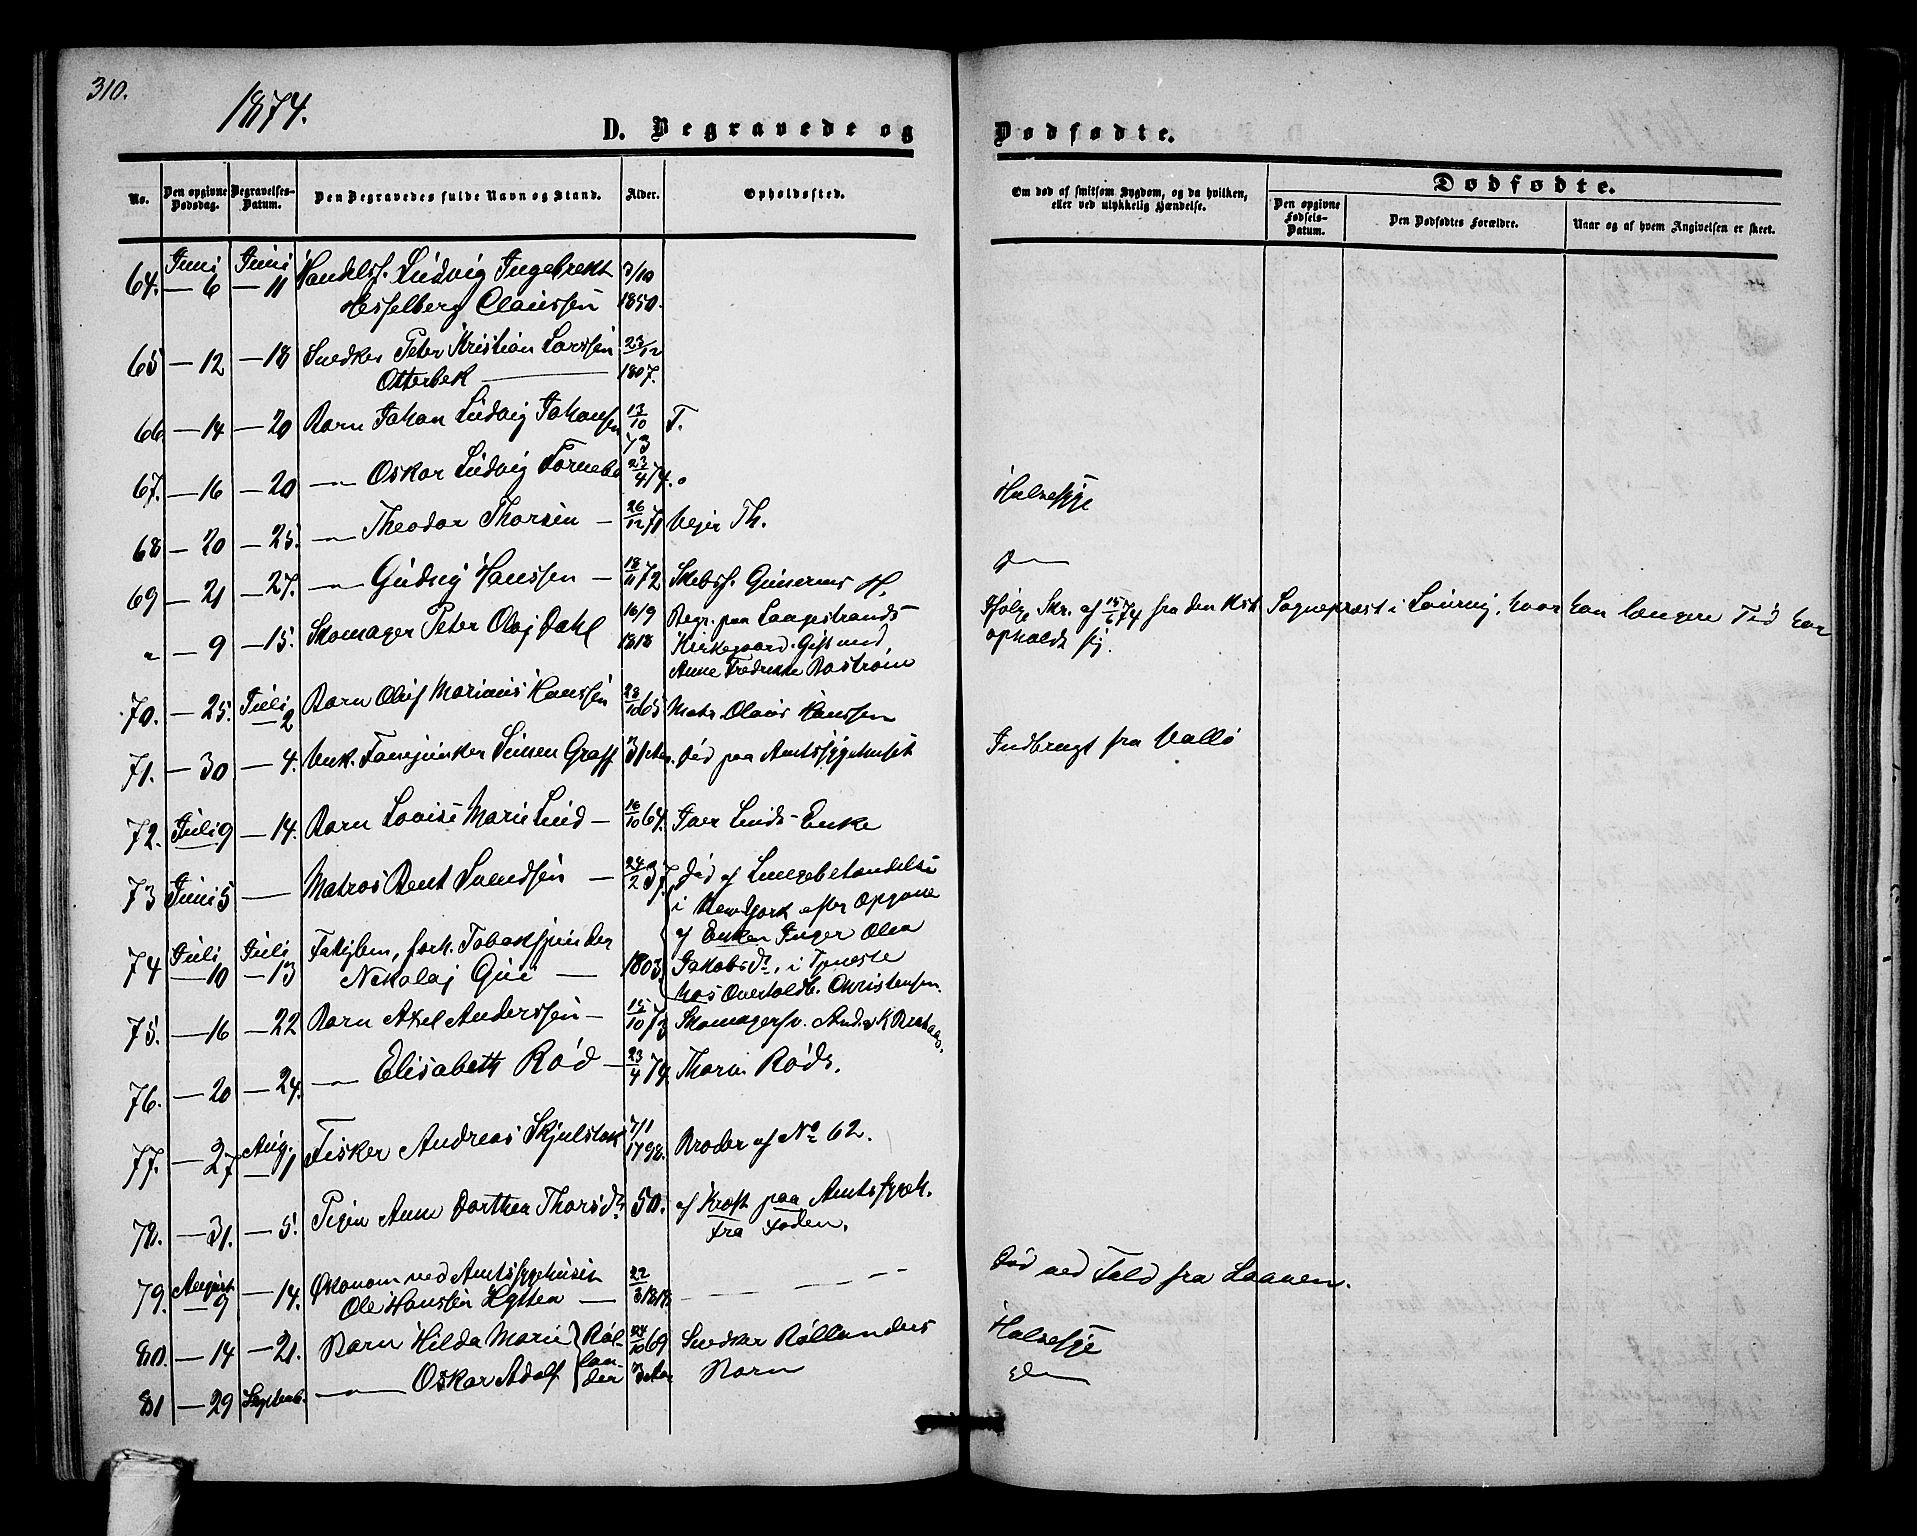 310.
1874.
D. Begravede og Dødfødte.
No. Den opgivne Dødsdag. Begravelses-Datum. Den Begravedes fulde Navn og Stand. Alder. Opholdssted. Om død af smitsom Sygdom, og da hvilken, eller ved ulykkelig Hændelse. Dødfødte. Den opgivne Fødsels-Datum. Den Dødfødtes Forældre. Naar og af hvem Angivelsen er skeet.
64. Juni 6 Juni 11 Handelsf. Ludvig Ingebrekt 3/10
Hesselberg Claussen 1850.
65 — 12 — 18 Snedker Peter Kristian Larssen 23/12
Otterbek — 1807.
66 — 14 — 20 Barn Johan Ludvig Johansen 13/10 73 T.
67. — 16 — 20 — Oskar Ludvig 23/4 74. Halsesyge
68 — 20 — 25. — Theodor Thorsen — 26/12 71 Vejer Th.
69 — 21 — 27. — Gudvig Hanssen — 18/11 72 Skibsf. H.
" — 9 — 15. Skomager Peter Olaj Dahl 16/9 1818 Begr. paa Langestrands
Kirkegaard. Gift med
Anne Fredrikke Bostrøm
Ifølge Skr. af 15/6 74 fra den Kst. Sogneprest i Laurvig, hvor han længere Tid har
opholdt sig.
70. — 25. Juli 2 Barn Oluf Marius Hanssen 28/10 65 Matr. Olaus Hanssen
71. — 30 — 4. Unk. Fanejunker Simen Graff 31 Aar. Død paa Amtssygehuset Indbragt fra Vallø
72. Juli 9 — 14. Barn Lovise Marie Lund — 16/10 64. Iver Lunds Enke
73 Juni 5 — Matros Bent Svendsen — 24/2 37. Død af Lungebetændelse
i NewYork efter Opgave
af Enken Inger Olea
74 Juli 10 Juli 13 Fattiglem, forh. Tobakspinder
Nikolaj — 1803 Jakobsdr., i Tjeneste
hos Overtoldb. Christensen.
75. — 16 — 22 Barn Axel Anderssen — 15/10 73 Skomagersv.
76. — 20 — 24. — Elisabeth Rød — 23/4 74. Thorv. Røds.
77. — 27 Aug. 1 Fisker Andreas Skjulstok 7/1 1798. Broder af No 62.
78. — 31. — 5. Pigen Anne Dorthea Thorsdr. 50. af Kræft paa Amtssygeh.
Fra
79. August 9 — 14. Økonom ved Amtssygehuset 22/3 1818.
Ole Hanssen Hytten — Død ved Fald fra Laaven.
80. — 14 — 21. Barn Hilda Marie Røllander 24/10 69 Snedker Røllanders Halsesyge
81 — 29 Septemb. — Oskar Adolf 3 Aar Barn do —